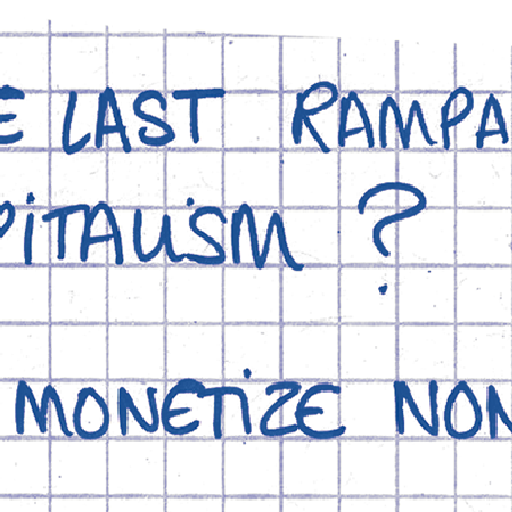 E LAST RAMPA
PITALISM ?
MONETIZE NON